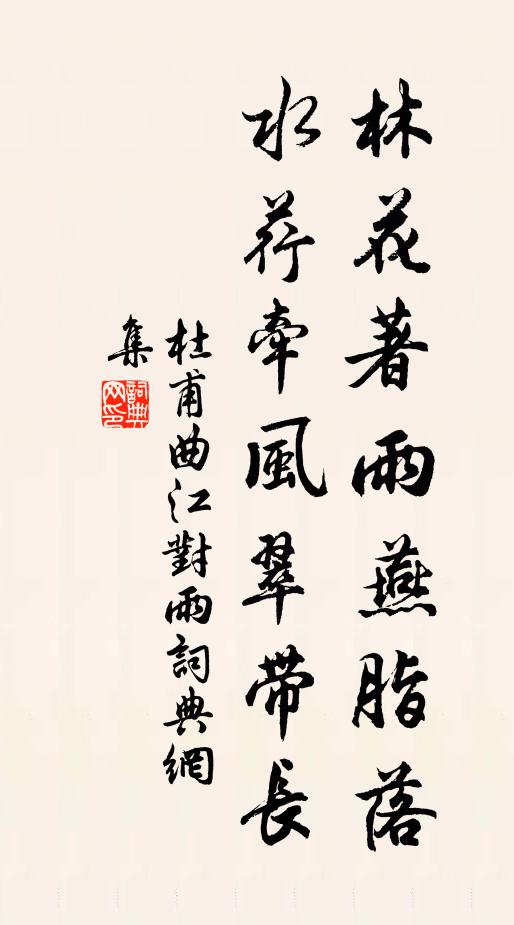 林花著雨燕脂落
水荇牽風翠帶長
杜甫曲江對雨詞典網
集
詞典網印